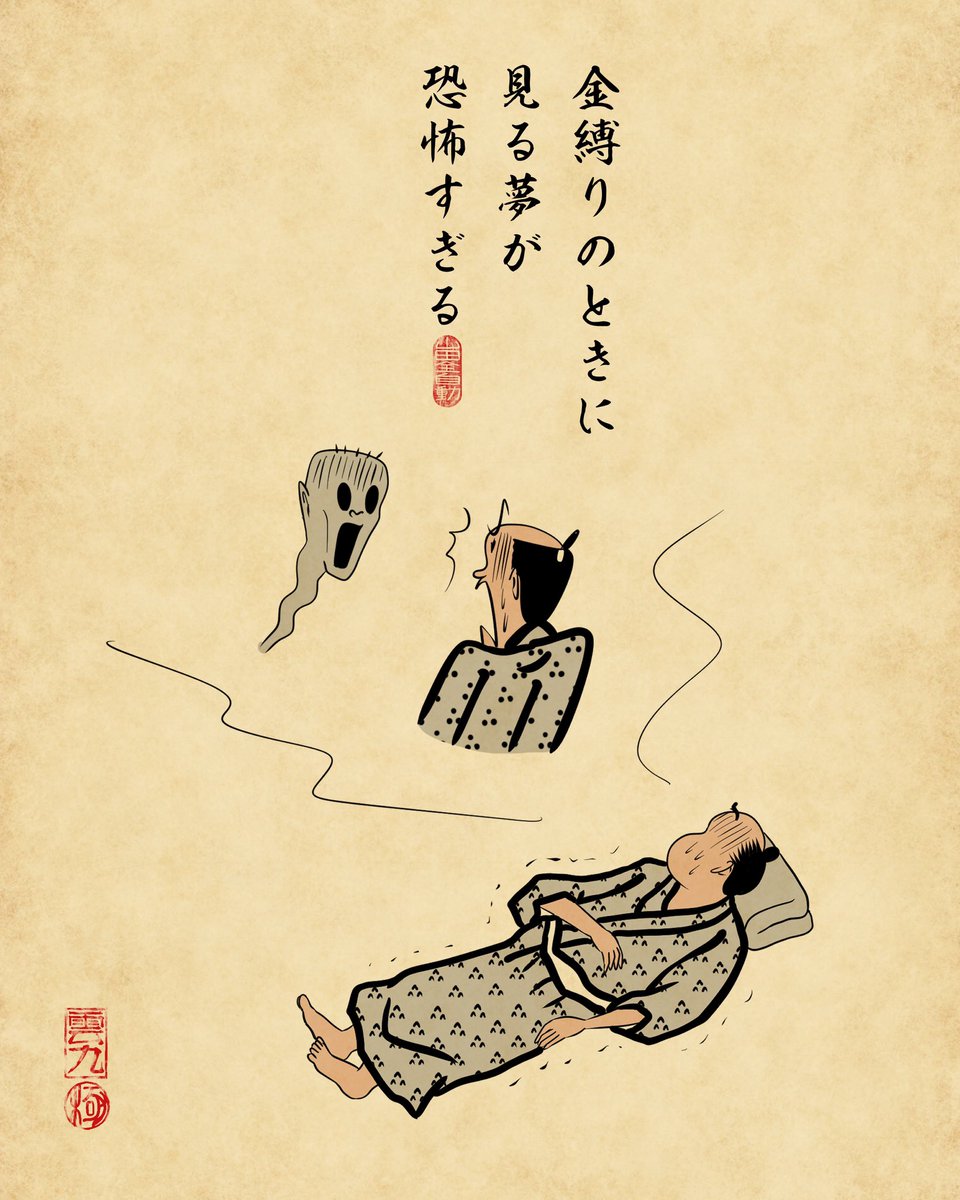 金縛りのときに
見る夢が
恐怖すぎる